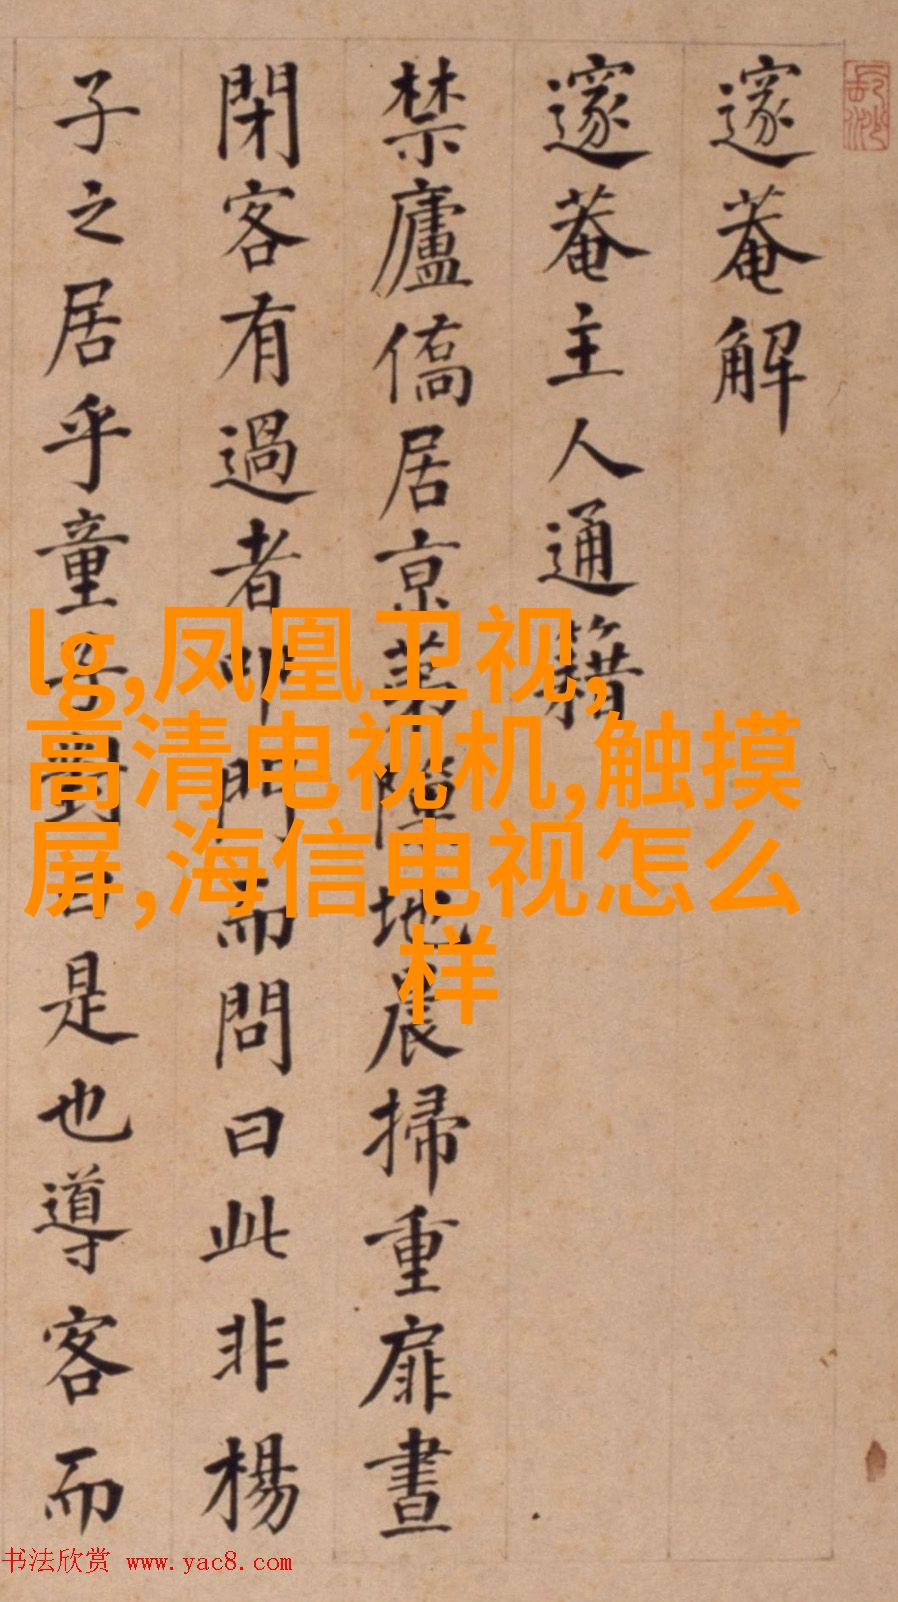 邃菴解
邃菴主人通籍
禁廬僑居京第隙地晨掃重扉晝
閉客有過者叩門而問曰此非楊
子之居乎童子對曰是也導客而
lg,凤凰卫视,
高清电视机,触摸
屏,海信电视怎么
样
书法欣赏 www.yac8.com